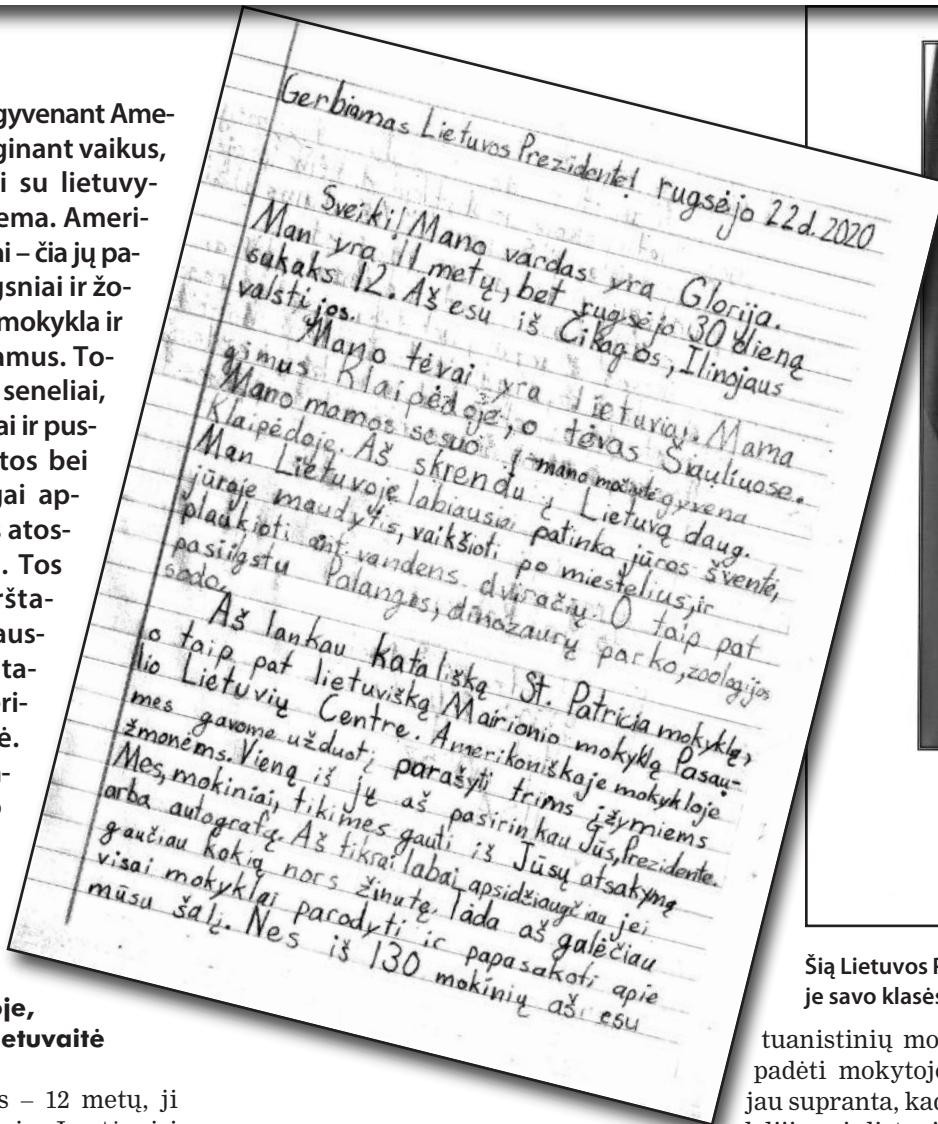 gyvenant Ame-
ginant vaikus,
i su lietuvy-
ema. Ameri-
ni – čia jų pa-
gsniai ir žo-
mokykla ir
amus. To-
seneliai,
ai ir pus-
tos bei
gai ap-
s atos-
. Tos
ršta-
aus-
ta-
eri-
ė.
oje,
etuvaitė
s – 12 metų, ji
Gerbiamas Lietuvos Prezidente! rugsėjo 22d. 2020
Sveiki! Mano vardas yra Glorija.
Man yra 11 metų, bet rugsėjo 30 dieną
sukaks 12. Aš esu iš Čikagos, Ilinojaus
valstijos.
Mano tėvai yra lietuviai. Mama
gimus Klaipėdoje, o tėvas Šiauliuose.
Mano mamos sesuo ir mano močiutė gyvena
Klaipėdoje. Aš skrendu į Lietuvą daug.
Man Lietuvoje labiausiai patinka jūros šventė,
jūroje maudytis, vaikšioti po miestelius, ir
plaukioti ant vandens dviračių. O taip pat
pasiigstu Palangęs, dinozaurų parko, zoologijos
sodo.
Aš lankau katališką St. Patricia mokyklą,
o taip pat lietuvišką Mairionio mokyklą Pasau-
lio Lietuvių Centre. Amerikoniškaje mokykloje
mes gavome užduotį parašyti trims įžymiems
žmonėms. Vieną iš jų aš pasirinkau Jūs, Prezidente.
Mes, mokiniai, tikimes gauti iš Jūsų atsakymą
arba autografą. Aš tikrai labai apsidžiaugčiau jei
gaučiau kokią nors žinutę. Tada aš galėčiau
visai mokyklai parodyti ir papasakoti apie
mūsu šalį. Nes iš 130 mokinių aš esu
Šią Lietuvos P
je savo klasės
tuanistinių mo
padėti mokytoj
jau supranta, kad